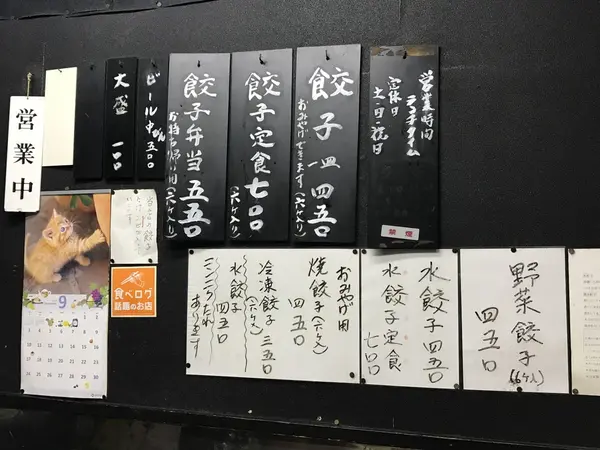 営業時間
ランチタイム
定休日
土・日・祝日
禁煙
餃子一皿四五〇
おみやげできます(六ケ入り)
餃子定食七〇〇
(六ケ入り)
餃子弁当五五〇
お持ち帰り用(六ケ入り)
ビール中びん五〇〇
大盛一〇〇
営業中
食べログ
話題のお店
9
野菜餃子(6ケ入)
四五〇
水餃子四五〇
水餃子定食
七〇〇
おみやげ用
焼餃子(六ケ入)
四五〇
冷凍餃子三五〇
(六ケ入)
水餃子
四五〇
ニンニクたれ
あります